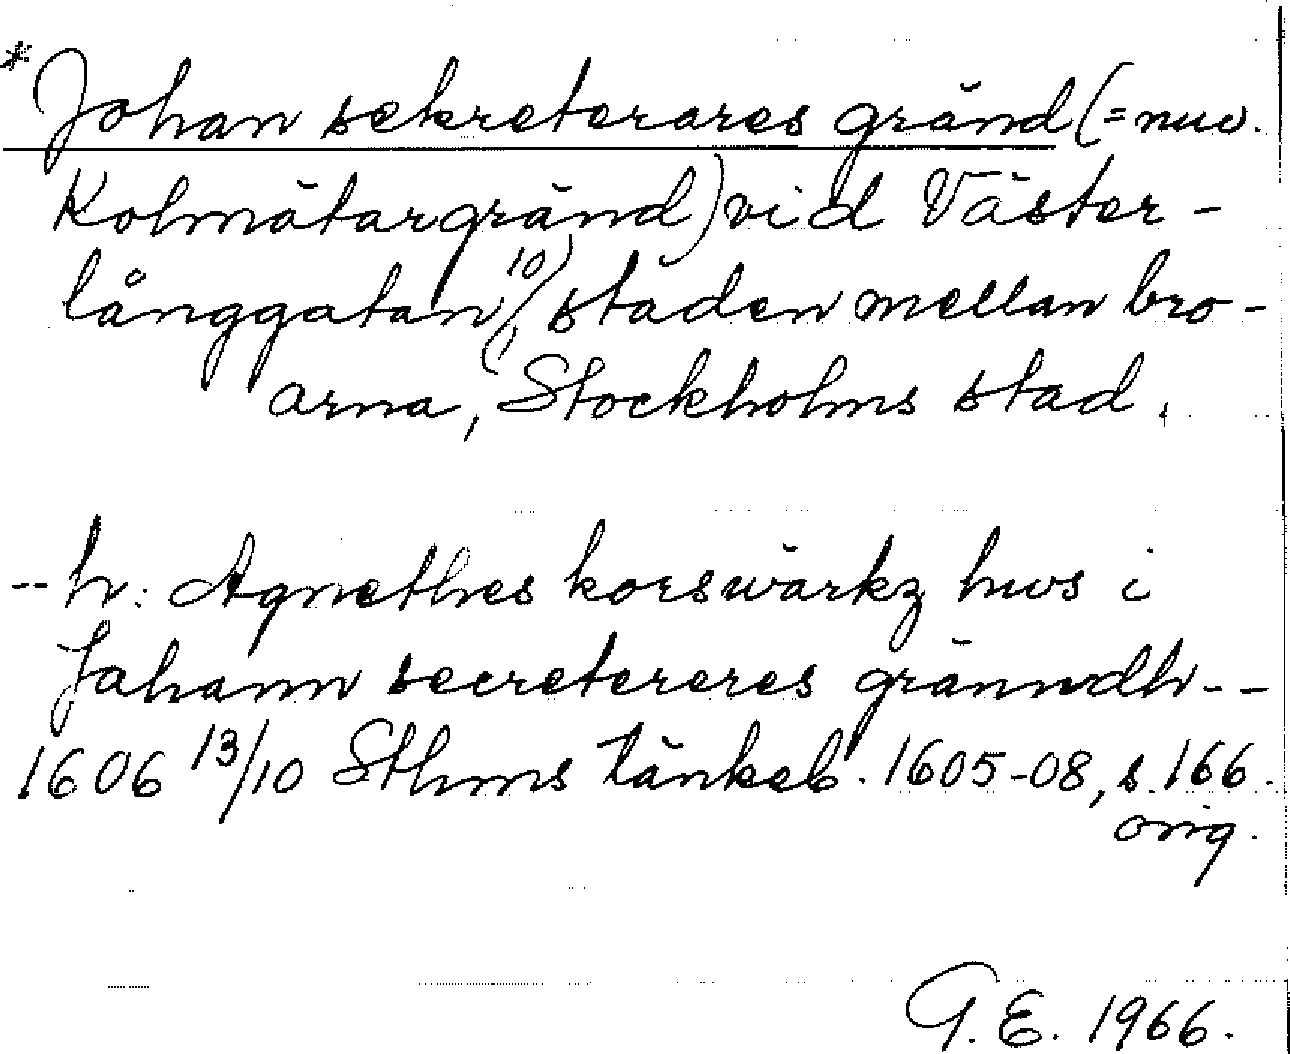 *Johan sekreterares gränd (= nuv.
Kolmätargränd) vid Väster-
långgatan (10), staden mellan bro-
arna, Stockholms stad.
-- hr: Agnethes korswärkz hws i
Johann secretereres gränndh --
1606 13/10 Sthms tänkeb. 1605-08, s. 166.
orig.
G. E. 1966.